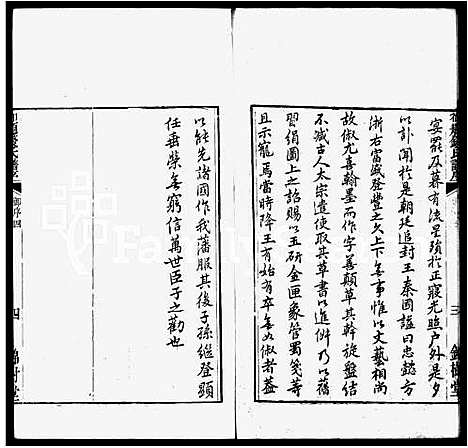 宴罷及暮有流星殞於正寢光照戶外是夕
以訃聞於是朝廷追封王秦國謚曰忠懿方
浙右富盛登豐之久上下無事惟以文藝相尚
故俶尤喜翰墨而作字善顛草其斡旋盤結
不減古人太宗遣使取其草書以進俶乃以舊
習絹圖上之詔賜以玉硯金匣象管蜀箋等
且示寵焉當時降王有始有卒無如俶者蓋
以能先諸國作我藩服其後子孫繼登顯
任垂榮無窮信萬世臣子之勸也
三
錦樹堂
御序
四
錦樹堂